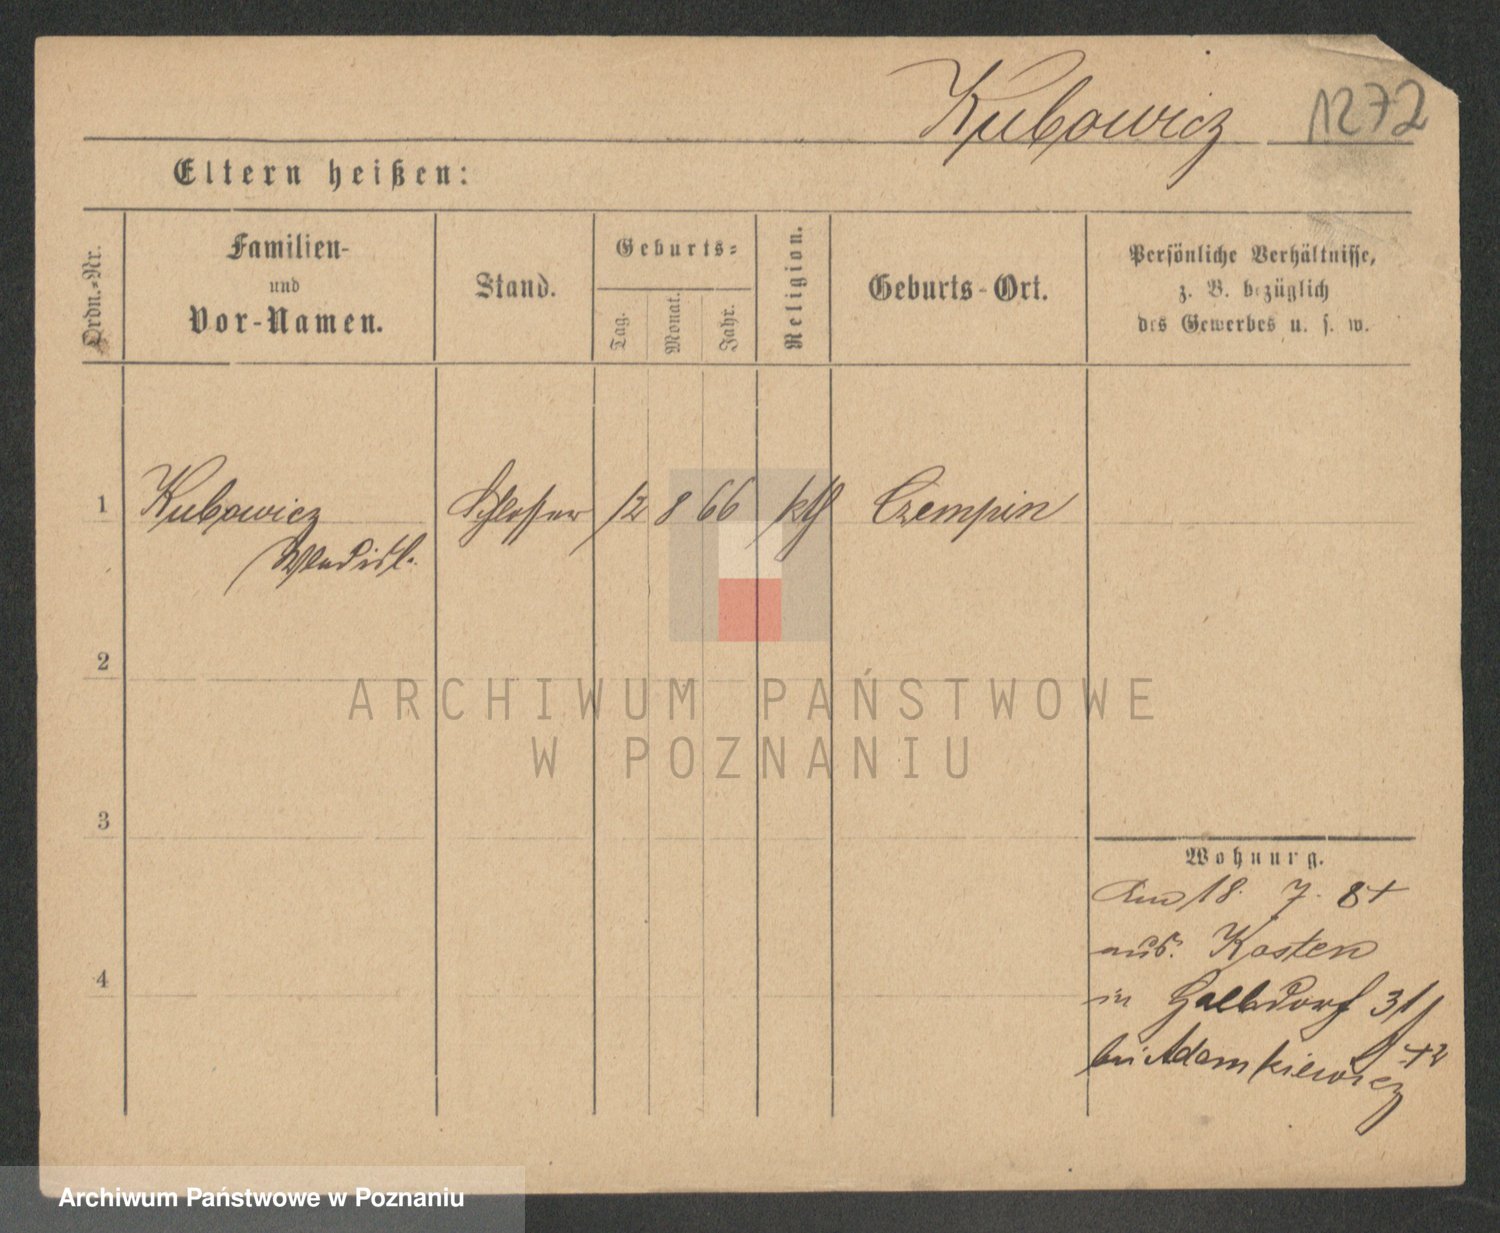 Kubowicz 1272
Eltern heißen:
Ordn.-Nr.
Familien-
und
Vor-Namen.
Stand.
Geburts-
Tag.
Monat.
Jahr.
Religion.
Geburts-Ort.
Persönliche Verhältnisse,
z. B. bezüglich
des Gewerbes u. s. w.
1 Kubowicz Schlosser 12 8 66 kth Czempin
Wladisl.
2
3
4
Wohnung.
18. 7. 8
aus. Kosten
in 31
bei Adamkiewicz
ARCHIWUM PAŃSTWOWE
W POZNANIU
Archiwum Państwowe w Poznaniu